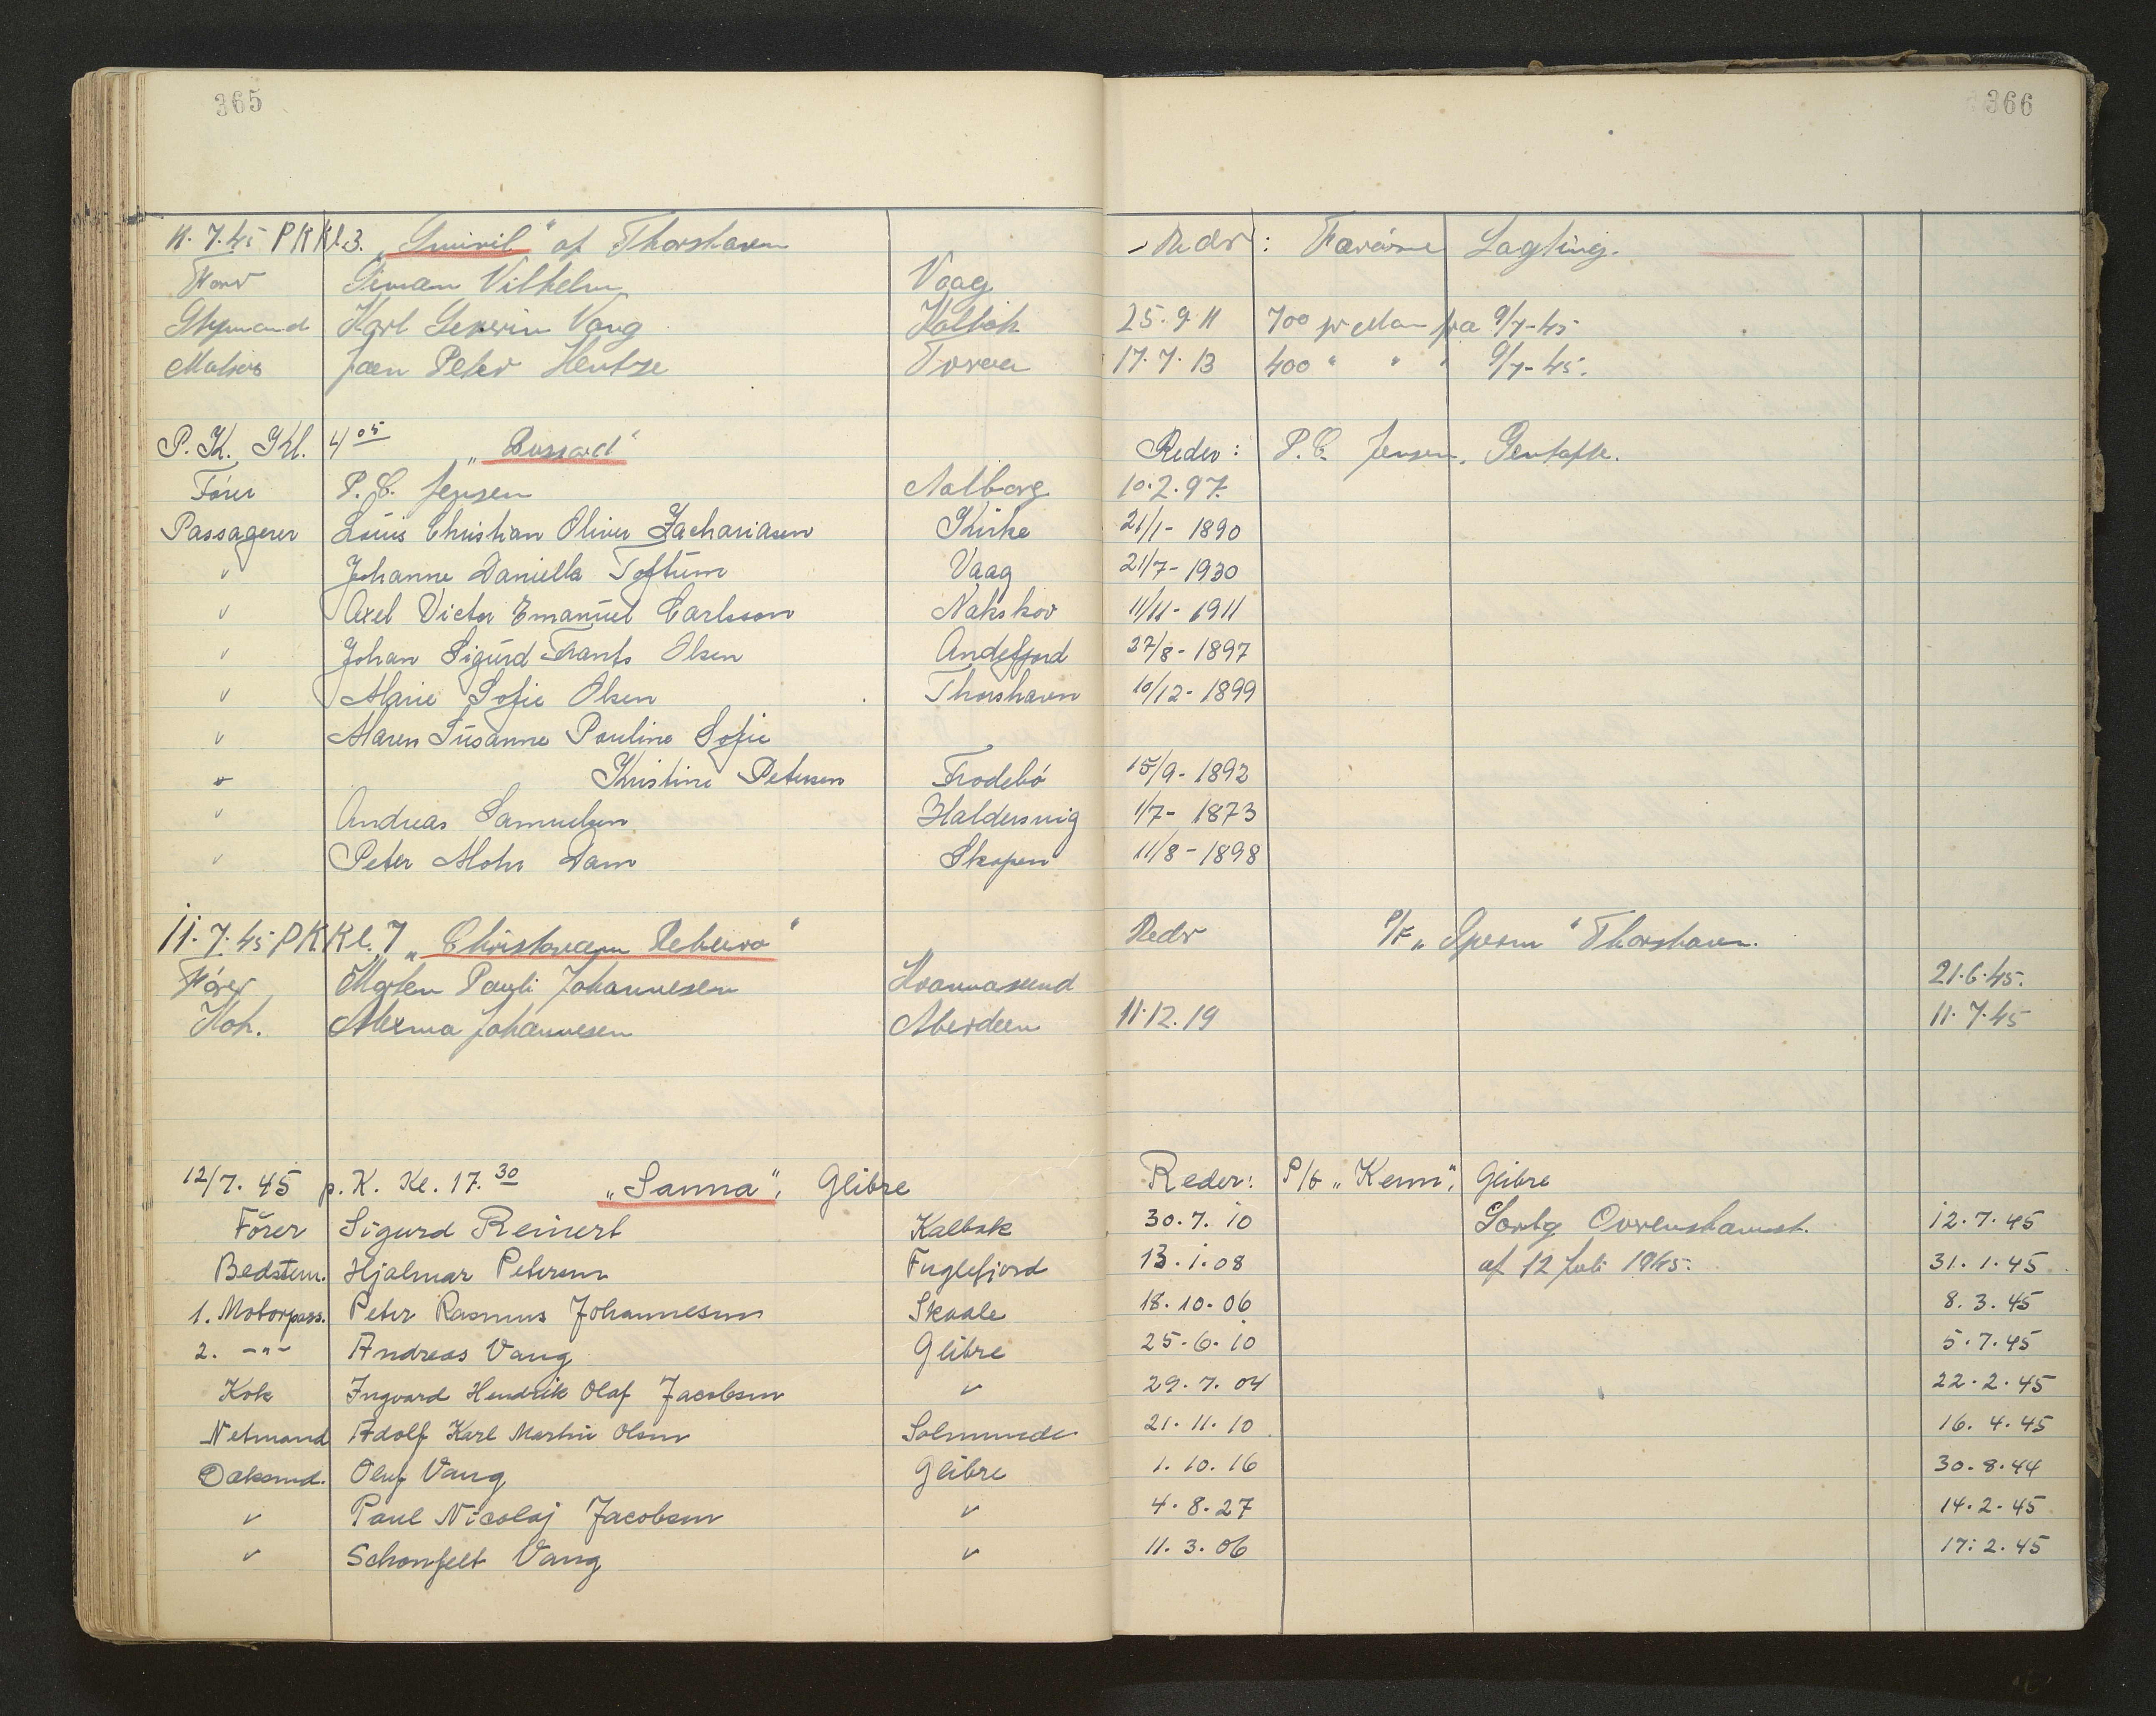 365 366
11. 7. 45 PK Kl. 3. „Smiril" af Thorshavn - Reder: Færøerne Lagting.
Fører Siman Vilhelm Vaag
Styrmand Karl Severin Vang Kolbak 25. 9 11 700 pr Man fra 9/7-45
Matros Jaen Peter Hentze Porcer 17. 7. 13 400 " " " 9/7-45.
P. K. Kl. 4 05 „Bussard" Reder: P. C. Jensen, Gentofte.
Fører P. C. Jensen Aalborg 10. 2. 97.
Passagerer Louis Christian Oliver Zachariasen Kirke 21/1 - 1890
" Johanne Daniella Toftum Vaag 21/7 - 1930
" Axel Victor Emanuel Carlsson Nakskov 11/11 - 1911
" Johan Sigurd Frants Olsen Andefjord 27/8 - 1897
" Marie Sofie Olsen Thorshavn 10/12 - 1899
" Maren Susanne Pauline Sofie
" Kristine Petersen Frodebø 15/9 - 1892
" Andreas Samuelsen Haldersvig 1/7 - 1873
" Peter Mohr Dam Skopen 11/8 - 1898
11. 7. 45 PK Kl. 7 „Christowam Rebeiro" Reder P/F „Sperm" Thorshavn.
Fører Morten Pauli Johannesen Kvannasund 21. 6. 45.
Kok. Johannesen Aberdeen 11. 12. 19 11. 7. 45
12/7. 45 p. K. Kl. 17. 30 „Sanna", Glibre Reder: P/F „Kenn", Glibre
Fører Sigurd Reinert Kalbak 30. 7. 10 Sorlg Overenskomst. 12. 7. 45
Bedstem. Hjalmar Petersen Fuglefjord 13. 1. 08 af 12 Juli 1945. 31. 1. 45
1. Motorpass. Peter Rasmus Johannesen Skaale 18. 10. 06 8. 3. 45
2. -"- Andreas Vang Glibre 25. 6. 10 5. 7. 45
Kok Ingvard Hendrik Olaf Jacobsen " 29. 7. 04 22. 2. 45
Netmand Adolf Karl Martin Olsen Solmunde 21. 11. 10 16. 4. 45
Dæksmd. Oluf Vang Glibre 1. 10. 16 30. 8. 44
" Paul Nicolaj Jacobsen " 4. 8. 27 14. 2. 45
" Schonfelt Vang " 11. 3. 06 17. 2. 45